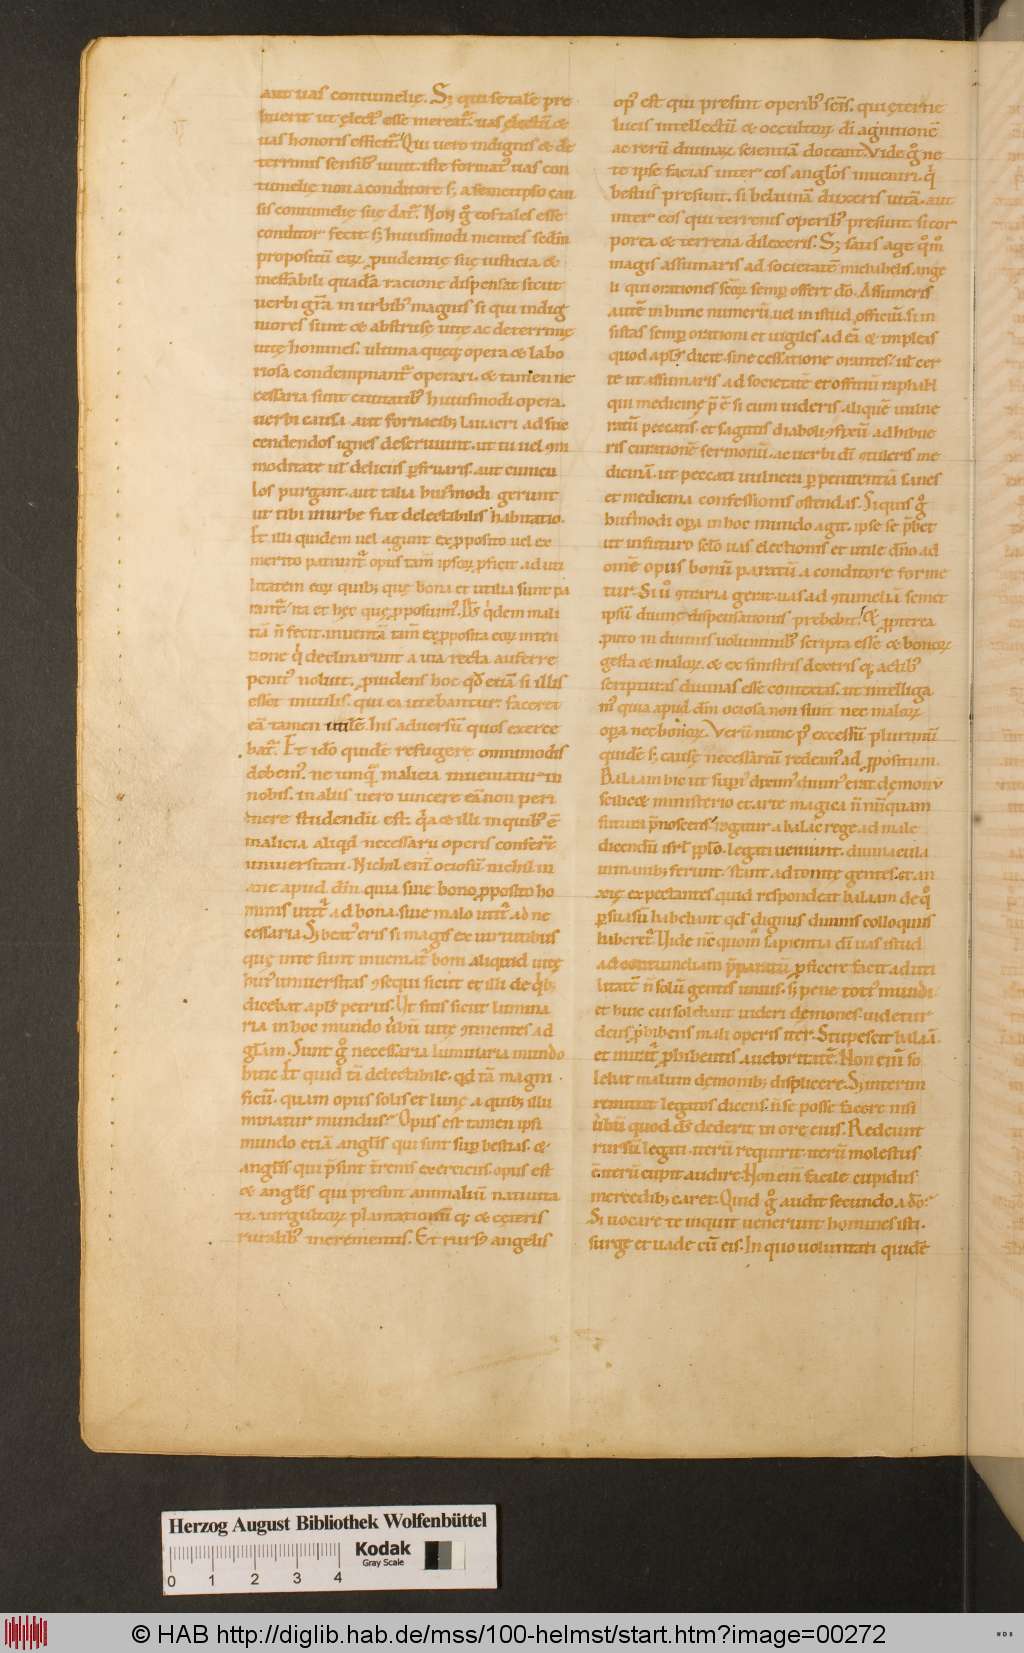 aut uas contumelię. Sꝫ qui se tale͂ pre
buerit ut elect᷒ esse mereat᷑. uas electu͂ &
uas honoris efficit᷑. Qui uero indignis & de
terrimis sensib᷒ uiuit. iste format᷑ uas con
tumelię non a conditore sꝫ a semetipso cau
sis contumelię suę dat᷑. Non g° eos tales esse
conditor fecit sꝫ huiusmodi mentes sed͂m
propositu͂ eoꝝ ꝓuidentię suę iusticia &
ineffabili quada͂ racione dispensat sicut
uerbi gr͂a in urbib᷒ magnis si qui indig
niores sunt & abstrusę uitę ac deterrimę
uitę homines. ultima quęqꝫ opera & labo
riosa condempnant᷑ operari. & tamen ne
cessaria sunt ciuitatib᷒ huiusmodi opera.
uerbi causa aut fornacibꝫ lauacri ad suc
cendendos ignes deseruiunt. ut tu uel ꝯm
moditate ut͂ deliciis ꝑfruaris. aut cunicu
los purgant. aut talia hui᷒modi gerunt
ut tibi in urbe fiat delectabilis habitatio.
Et illi quidem uel agunt ex ꝓposito uel ex
merito patiunt᷑. opus tam͂ ipsoꝝ ꝓficit ad uti
litatem eoꝝ quibꝫ quę bona et utilia sunt pa
rant᷑. ita et hęc quę ꝓposuim᷒. D͂s q͂dem mali
tia͂ n͂ fecit. inuenta͂ tam͂ ex ꝓposita eoꝝ inten
tione q͂ declinarunt a uia recta auferre
penit᷒ noluit. ꝓuidens hoc qđ etia͂ si illis
esset inutilis. qui ea utebantur. faceret
ea͂ tamen utile͂. his aduersu͂ quos exerce
bat᷑. Et id͂o quide͂ refugere omnimodis
debem᷒. ne umq͂ malicia inueniatur in
nobis. in aliis uero uincere ea͂ non peri
mere studendu͂ est. q͂a & illi in quib᷒ e͂
malicia aliqđ necessarii operis confert.
uniuersitati. Nichil eni͂ ociosu͂ nichil in
ane apud d͂m quia siue bono ꝓposito ho
minis utit᷑ ad bona. siue malo utit᷑ ad ne
cessaria Sꝫ beat᷒ eris si magis ex uirutibus
quę in te sunt inueniat᷑ boni aliquid uitę
hui᷒ uniuersitas ꝯsequi sicut et illi de q͂bꝫ
dicebat apl͂s petrus. Ut sitis sicut lumina
ria in hoc mundo u͂bu͂ uitę ꝯtinentes ad
gl͂am. Sunt g° necessaria luminaria mundo
huic. Et quid ta͂ delectabile. qđ ta͂ magni
ficu͂. quam opus solis et lunę a quibꝫ illu
minatur mundus? Opus est tamen ipsi
mundo etia͂ angl͂is qui sint sup͂ bestias. &
angl͂is qui p͂sint t͂renis exercitiis. opus est
& angl͂is qui presint animaliu͂ natiuita
ti. uirgultoꝝ plantationu͂ qꝫ & ceteris
ruralib᷒ incrementis. Et rurs᷒ angelis
op᷒ est qui presint operib᷒ sc͂is. qui ęternę
lucis intellectu͂ & occultoꝝ di͂ agnitione͂
ac reru͂ diuinaꝝ scientia͂ doceant. Vide g° ne
te ipse facias inter eos angl͂os inueniri. q͂
bestiis presunt. si beluina͂ duxeris uita͂. aut
inter eos qui terrenis operib᷒ presunt. si cor
porea & terrena dilexeris. Sꝫ satis age q°m°
magis assumaris ad societate͂ michahelis. ange
li qui orationes sc͂oꝝ semꝑ offert d͂o. Assumeris
aute͂ in hunc numeru͂. uel in istud officiu͂. si in
sistas semꝑ orationi et uigiles ad ea͂ & impleas
quod apl͂s dicit. sine cessatione orantes. ut͂ cer
te ut assumaris ad societate͂ et officiu͂ raphahl
qui medicinę p͂ e͂ si cum uideris. alique͂ uulne
ratu͂ peccatis. et sagittis diaboli ꝯfixu͂ adhibue
ris curatione͂ sermonu͂. ac uerbi d͂i ꝯtuleris me
dicina͂. ut peccati uulnera ꝑ penitentia͂ sanes
et medicina confessionis ostendas. Siquis g°
hui᷒modi oꝑa in hoc mundo agit. ipse se p͂bet
ut in futuro sc͂lo uas electionis et utile d͂no ad
om͂e opus bonu͂ paratu͂ a conditore forme
tur. Si u° ꝯtraria gerat. uas ad ꝯtumelia͂ semet
ipsu͂ diuine dispensationis prebebit. & ꝓpterea
puto in diuinis uoluminib᷒ scripta esse & bonoꝝ
gesta & maloꝝ. & ex sinistris dextris qꝫ actib᷒
scripturas diuinas esse contextas. ut intelliga
m᷒ quia apud d͂m ociosa non sunt nec maloꝝ
oꝑa nec bonoꝝ. Veru͂ nunc p᷒ excessu͂ plurimu͂
quide͂ sꝫ causę necessariu͂ redeam᷒ ad ꝓpositum.
Balaam hic ut superi᷒ dixim᷒ diuin᷒ erat. demonu͂
scilicet ministerio et arte magica n͂ nu͂quam
futura p͂noscens. rogatur a balac rege. ad male
dicendu͂ isrl͂ ppl͂o. legati ueniunt. diuinacula
in manib᷒ ferunt. stant adtonitę gentes. et an
xię expectantes quid respondeat balaam de q°
ꝑsuasu͂ habebant qđ dignus diuinis colloquiis
haberet᷑. Uide nc͂ quom͂ sapientia d͂i uas istud
ad contumeliam p͂paratu͂ ꝓficere facit ad uti
litate͂ n͂ solu͂ gentis unius. sꝫ pene toti᷒ mundi
et huic cui solebant uideri demones. uidetur
deus ꝓhibens mali operis iter. Stupescit balaa͂
et mirat᷑ ꝓhibentis auctoritate͂. Non eni͂ so
lebat malum demonibꝫ displicere. Sꝫ interim
remittit legatos dicens. n͂ se posse facere nisi
u͂bu͂ quod d͂s dederit in ore eius. Redeunt
rursu͂ legati. iteru͂ requirit. iteru͂ molestus
e͂. iteru͂ cupit audire. Non eni͂ facile cupidus
mercedibꝫ caret. Quid g° audit secundo a d͂o?
Si uocare te inquit uenerunt homines isti.
surge et uade cu͂ eis. In quo uoluntati quide͂
Herzog August Bibliothek Wolfenbüttel
Kodak
Gray Scale
0 1 2 3 4
© HAB http://diglib.hab.de/mss/100-helmst/start.htm?image=00272